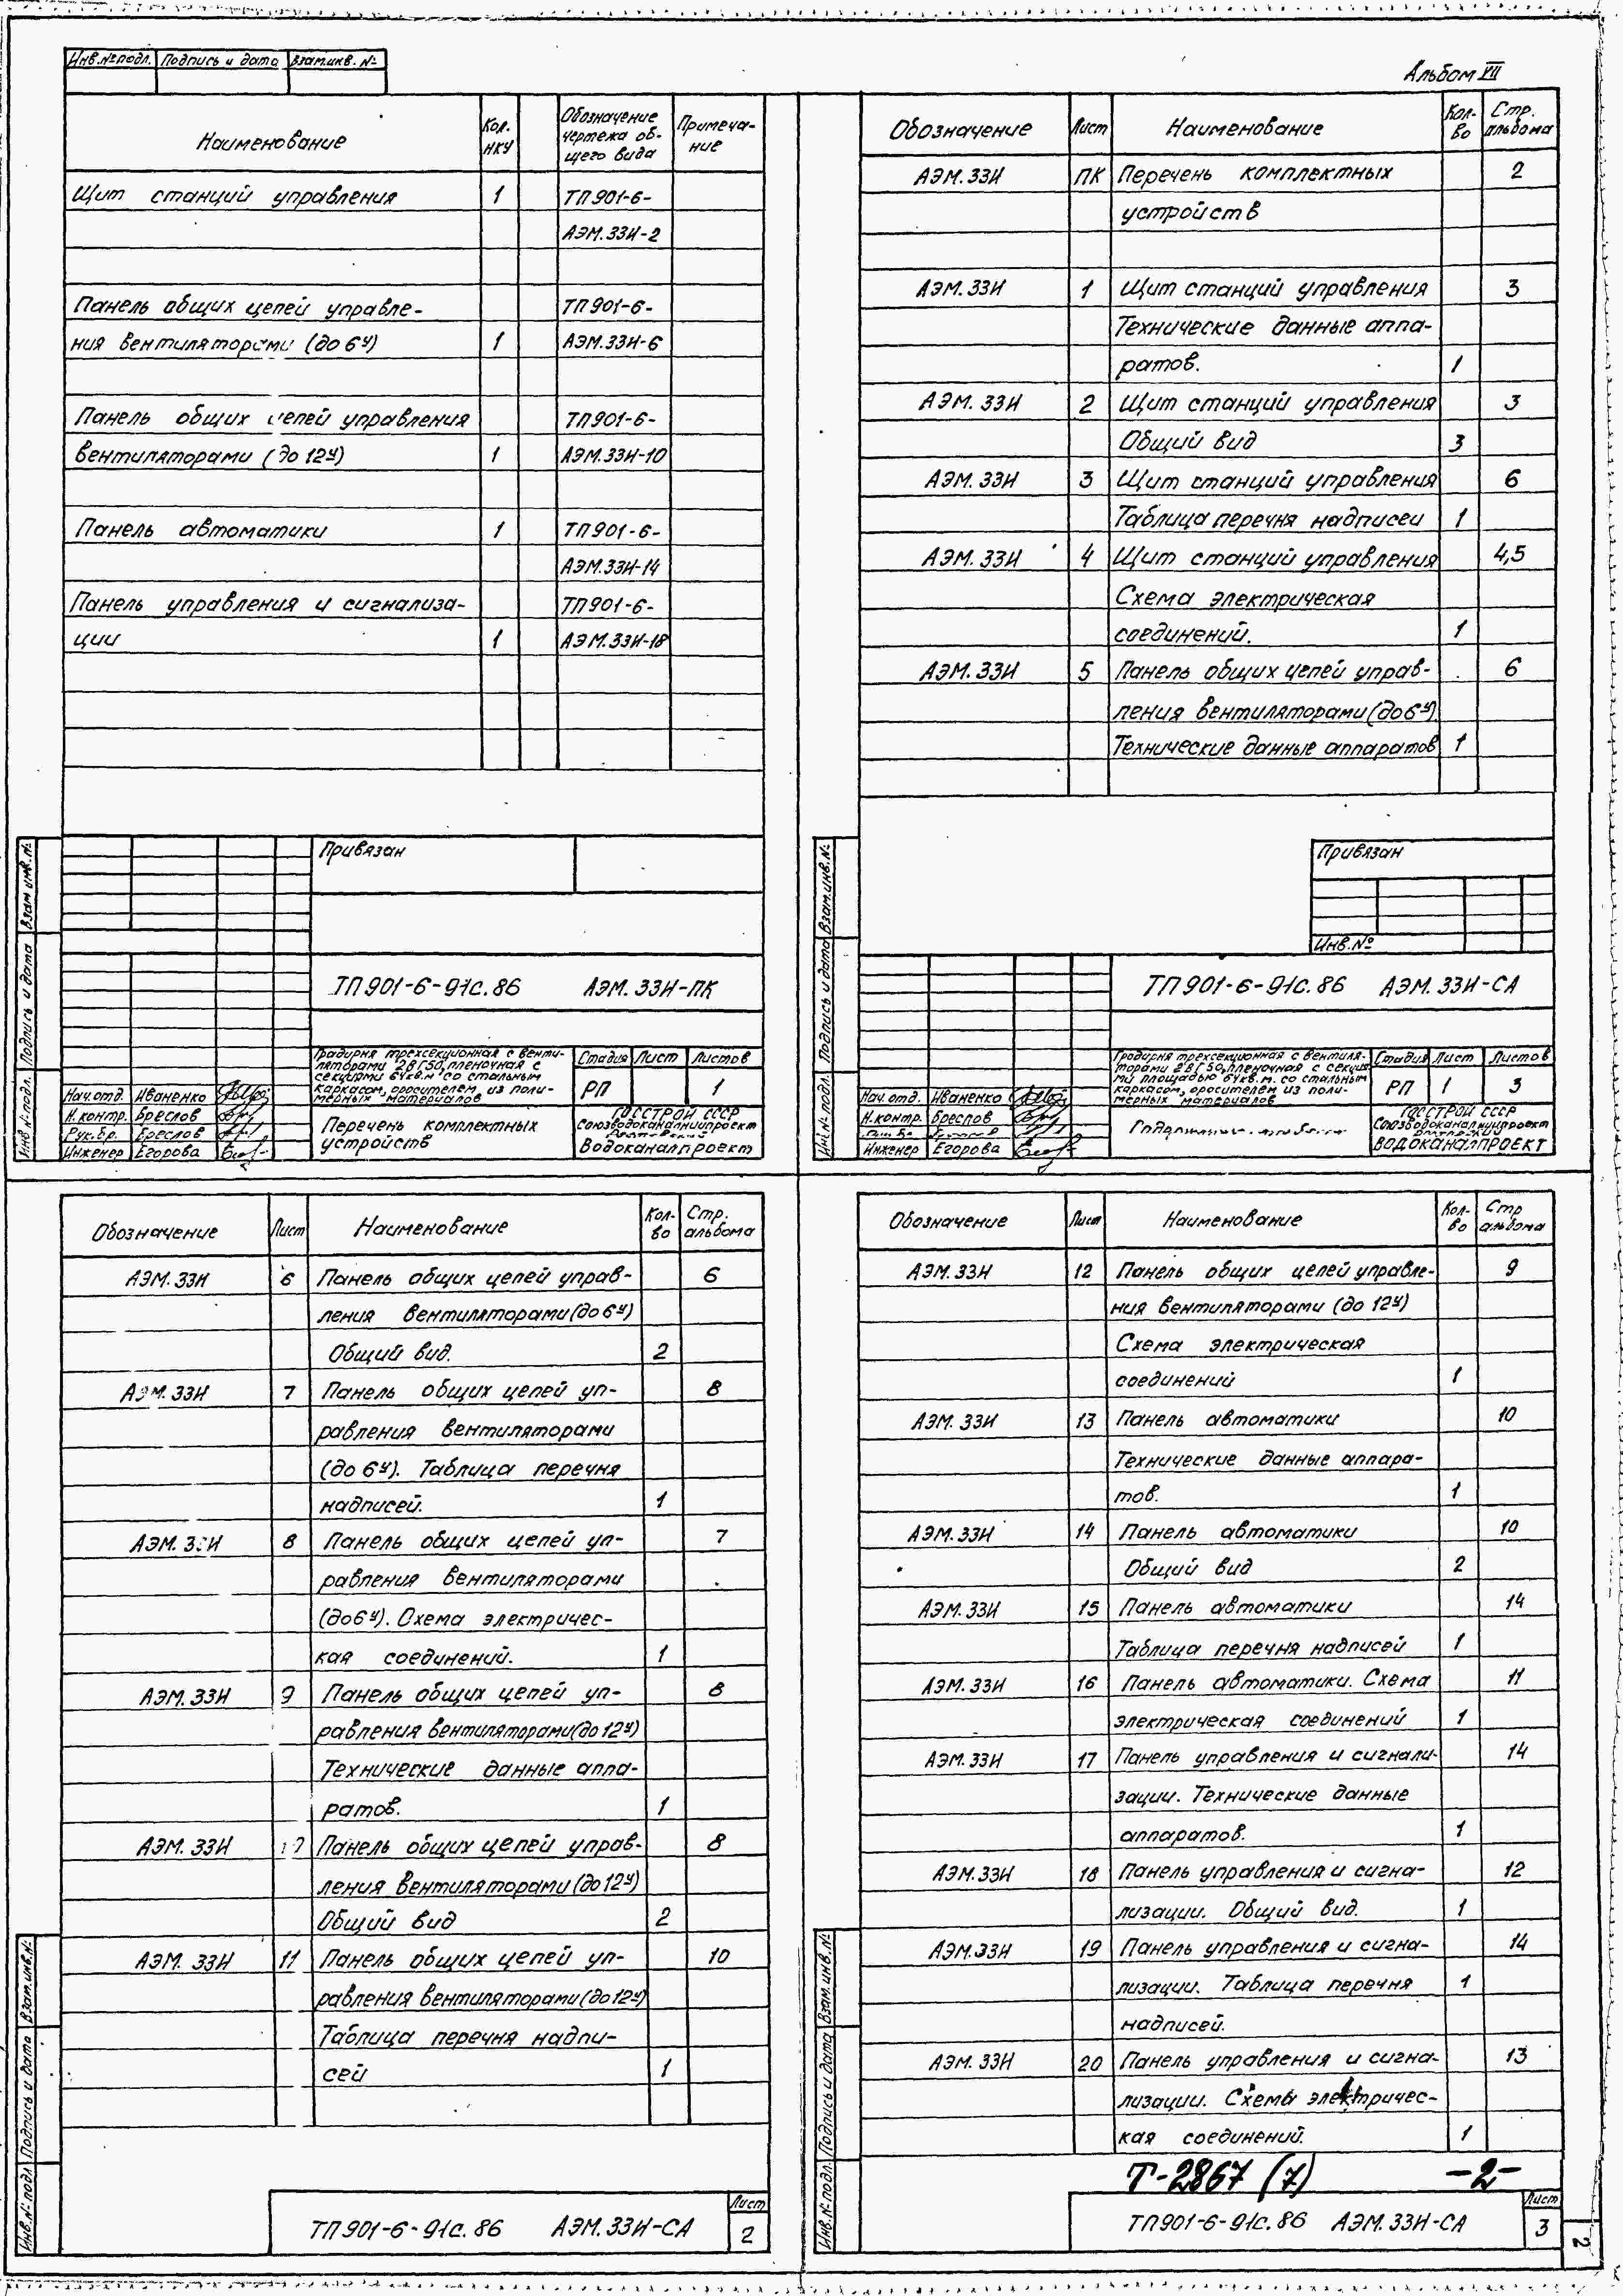 Инв.№подл. Подпись и дата Взам.инв. №
Альбом VII
Наименование Кол. НКУ Обозначение чертежа общего вида Примечание
Щит станций управления 1 ТП901-6-
АЭМ.33И-2
Панель общих цепей управле- ТП901-6-
ния вентиляторами (до 6У) 1 АЭМ.33И-6
Панель общих цепей управления ТП901-6-
вентиляторами (до 12У) 1 АЭМ.33И-10
Панель автоматики 1 ТП901-6-
АЭМ.33И-14
Панель управления и сигнализа- ТП901-6-
ции 1 АЭМ.33И-18
Привязан
ТП901-6-91с.86 АЭМ.33И-ПК
Градирня трехсекционная с венти-
ляторами 2ВГ50, пленочная с
секциями 64кв.м со стальным
каркасом, оросителем из поли-
мерных материалов
Стадия Лист Листов
РП 1
Нач.отд. Иваненко
Н.контр. Бреслов
Рук.бр. Бреслов
Инженер Егорова
Перечень комплектных
устройств
Госстрой СССР
Союзводоканалниипроект
Ростовский
Водоканалпроект
Инв.№подл. Подпись и дата Взам.инв.№
Обозначение Лист Наименование Кол-во Стр. альбома
АЭМ.33И ПК Перечень комплектных 2
устройств
АЭМ.33И 1 Щит станций управления 3
Технические данные аппа-
ратов. 1
АЭМ.33И 2 Щит станций управления 3
Общий вид 3
АЭМ.33И 3 Щит станций управления 6
Таблица перечня надписей 1
АЭМ.33И 4 Щит станций управления 4,5
Схема электрическая
соединений. 1
АЭМ.33И 5 Панель общих цепей управ- 6
ления вентиляторами (до 6У).
Технические данные аппаратов 1
Привязан
Инв.№
ТП901-6-91с.86 АЭМ.33И-СА
Градирня трехсекционная с вентиля-
торами 2ВГ50, пленочная с секция-
ми площадью 64кв.м. со стальным
каркасом, оросителем из поли-
мерных материалов
Стадия Лист Листов
РП 1 3
Нач.отд. Иваненко
Н.контр. Бреслов
Инженер Егорова
Госстрой СССР
Союзводоканалниипроект
Ростовский
Водоканалпроект
Инв.№подл. Подпись и дата Взам.инв.№
Обозначение Лист Наименование Кол-во Стр. альбома
АЭМ.33И 6 Панель общих цепей управ- 6
ления вентиляторами (до 6У)
Общий вид. 2
АЭМ.33И 7 Панель общих цепей уп- 8
равления вентиляторами
(до 6У). Таблица перечня
надписей. 1
АЭМ.33И 8 Панель общих цепей уп- 7
равления вентиляторами
(до 6У). Схема электричес-
кая соединений. 1
АЭМ.33И 9 Панель общих цепей уп- 8
равления вентиляторами (до 12У)
Технические данные аппа-
ратов. 1
АЭМ.33И 10 Панель общих цепей управ- 8
ления вентиляторами (до 12У)
Общий вид 2
АЭМ.33И 11 Панель общих цепей уп- 10
равления вентиляторами (до 12У)
Таблица перечня надпи-
сей 1
ТП901-6-91с.86 АЭМ.33И-СА
Лист
2
Инв.№подл. Подпись и дата Взам.инв.№
Обозначение Лист Наименование Кол-во Стр альбома
АЭМ.33И 12 Панель общих цепей управле- 9
ния вентиляторами (до 12У)
Схема электрическая
соединений 1
АЭМ.33И 13 Панель автоматики 10
Технические данные аппара-
тов. 1
АЭМ.33И 14 Панель автоматики 10
Общий вид 2
АЭМ.33И 15 Панель автоматики 14
Таблица перечня надписей 1
АЭМ.33И 16 Панель автоматики. Схема 11
электрическая соединений 1
АЭМ.33И 17 Панель управления и сигнали- 14
зации. Технические данные
аппаратов. 1
АЭМ.33И 18 Панель управления и сигна- 12
лизации. Общий вид. 1
АЭМ.33И 19 Панель управления и сигна- 14
лизации. Таблица перечня 1
надписей.
АЭМ.33И 20 Панель управления и сигна- 13
лизации. Схемы электричес-
кая соединений. 1
Т-2867 (7) -2-
ТП901-6-91с.86 АЭМ.33И-СА
Лист
3
2
Инв.№подл. Подпись и дата Взам.инв.№